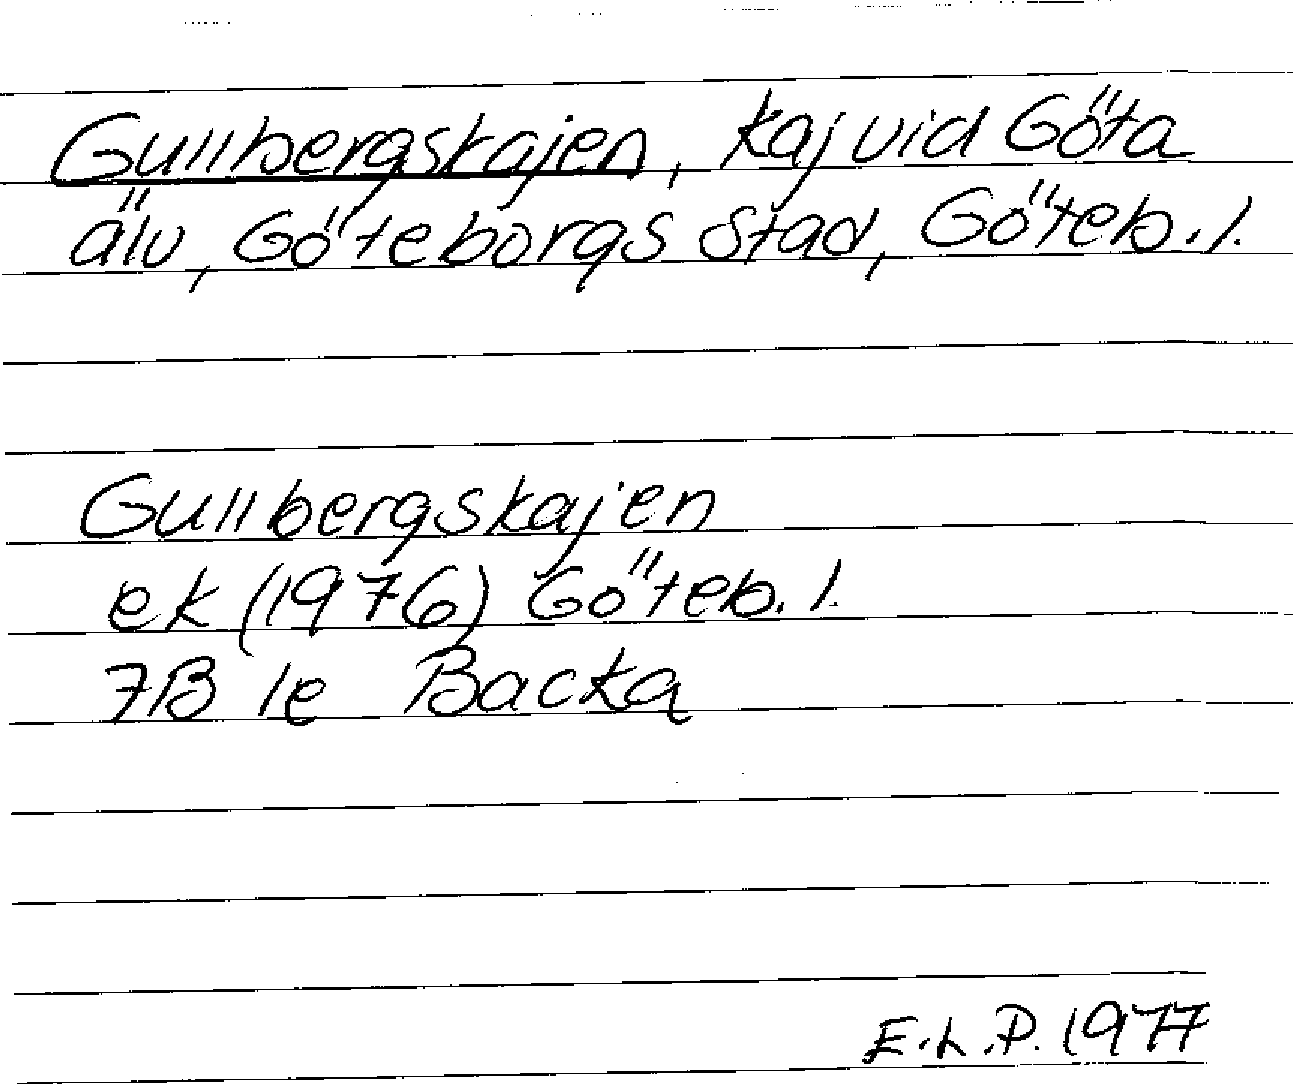 Gullbergskajen, kaj vid Göta
älv, Göteborgs stad, Göteb. l.
Gullbergskajen
ek (1976) Göteb. l.
7B 1e Backa
E.L.P. 1977